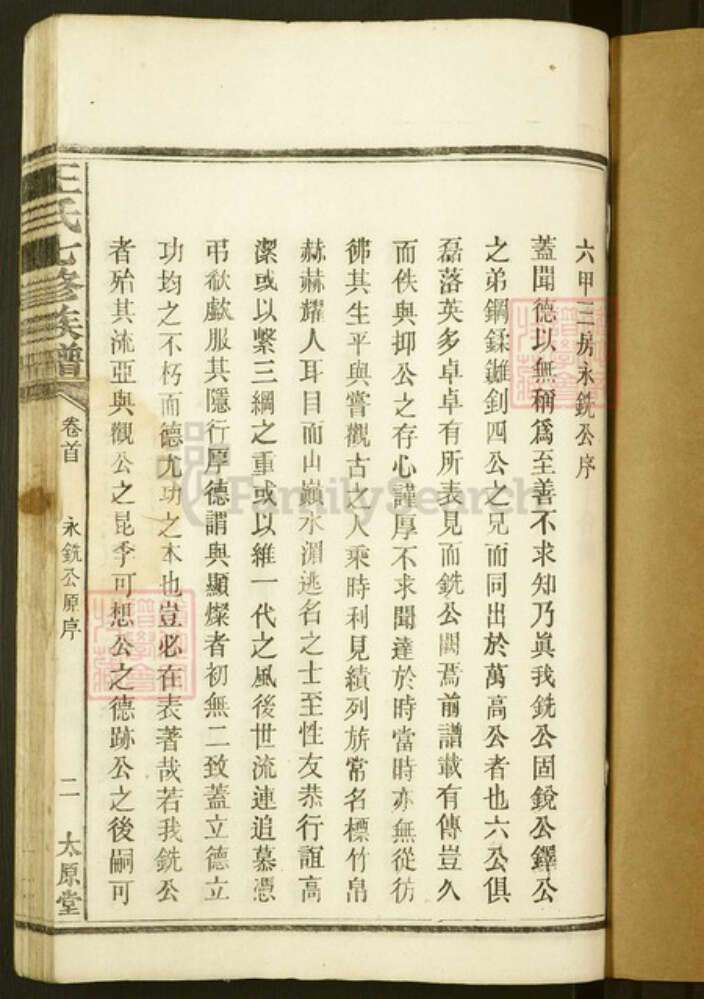 六甲三房永銑公序
蓋聞德以無稱爲至善不求知乃眞我銑公固銳公鐸公
之弟鋼鍒錐釗四公之兄而同出於萬高公者也六公俱
磊落英多卓卓有所表見而銑公闕焉前譜載有傳豈久
而佚與抑公之存心謹厚不求聞達於時當時亦無從彷
彿其生平與嘗觀古之人乘時利見績列旂常名標竹帛
赫赫耀人耳目而山巔水湄逃名之士至性友恭行誼高
潔或以繫三綱之重或以維一代之風後世流連追慕憑
弔欷歔服其隱行厚德謂與顯燦者初無二致蓋立德立
功均之不朽而德尤功之本也豈必在表著哉若我銑公
者殆其流亞與觀公之昆季可想公之德跡公之後嗣可
王氏七修族譜 卷首 永銑公原序 二 太原堂
FamilySearch